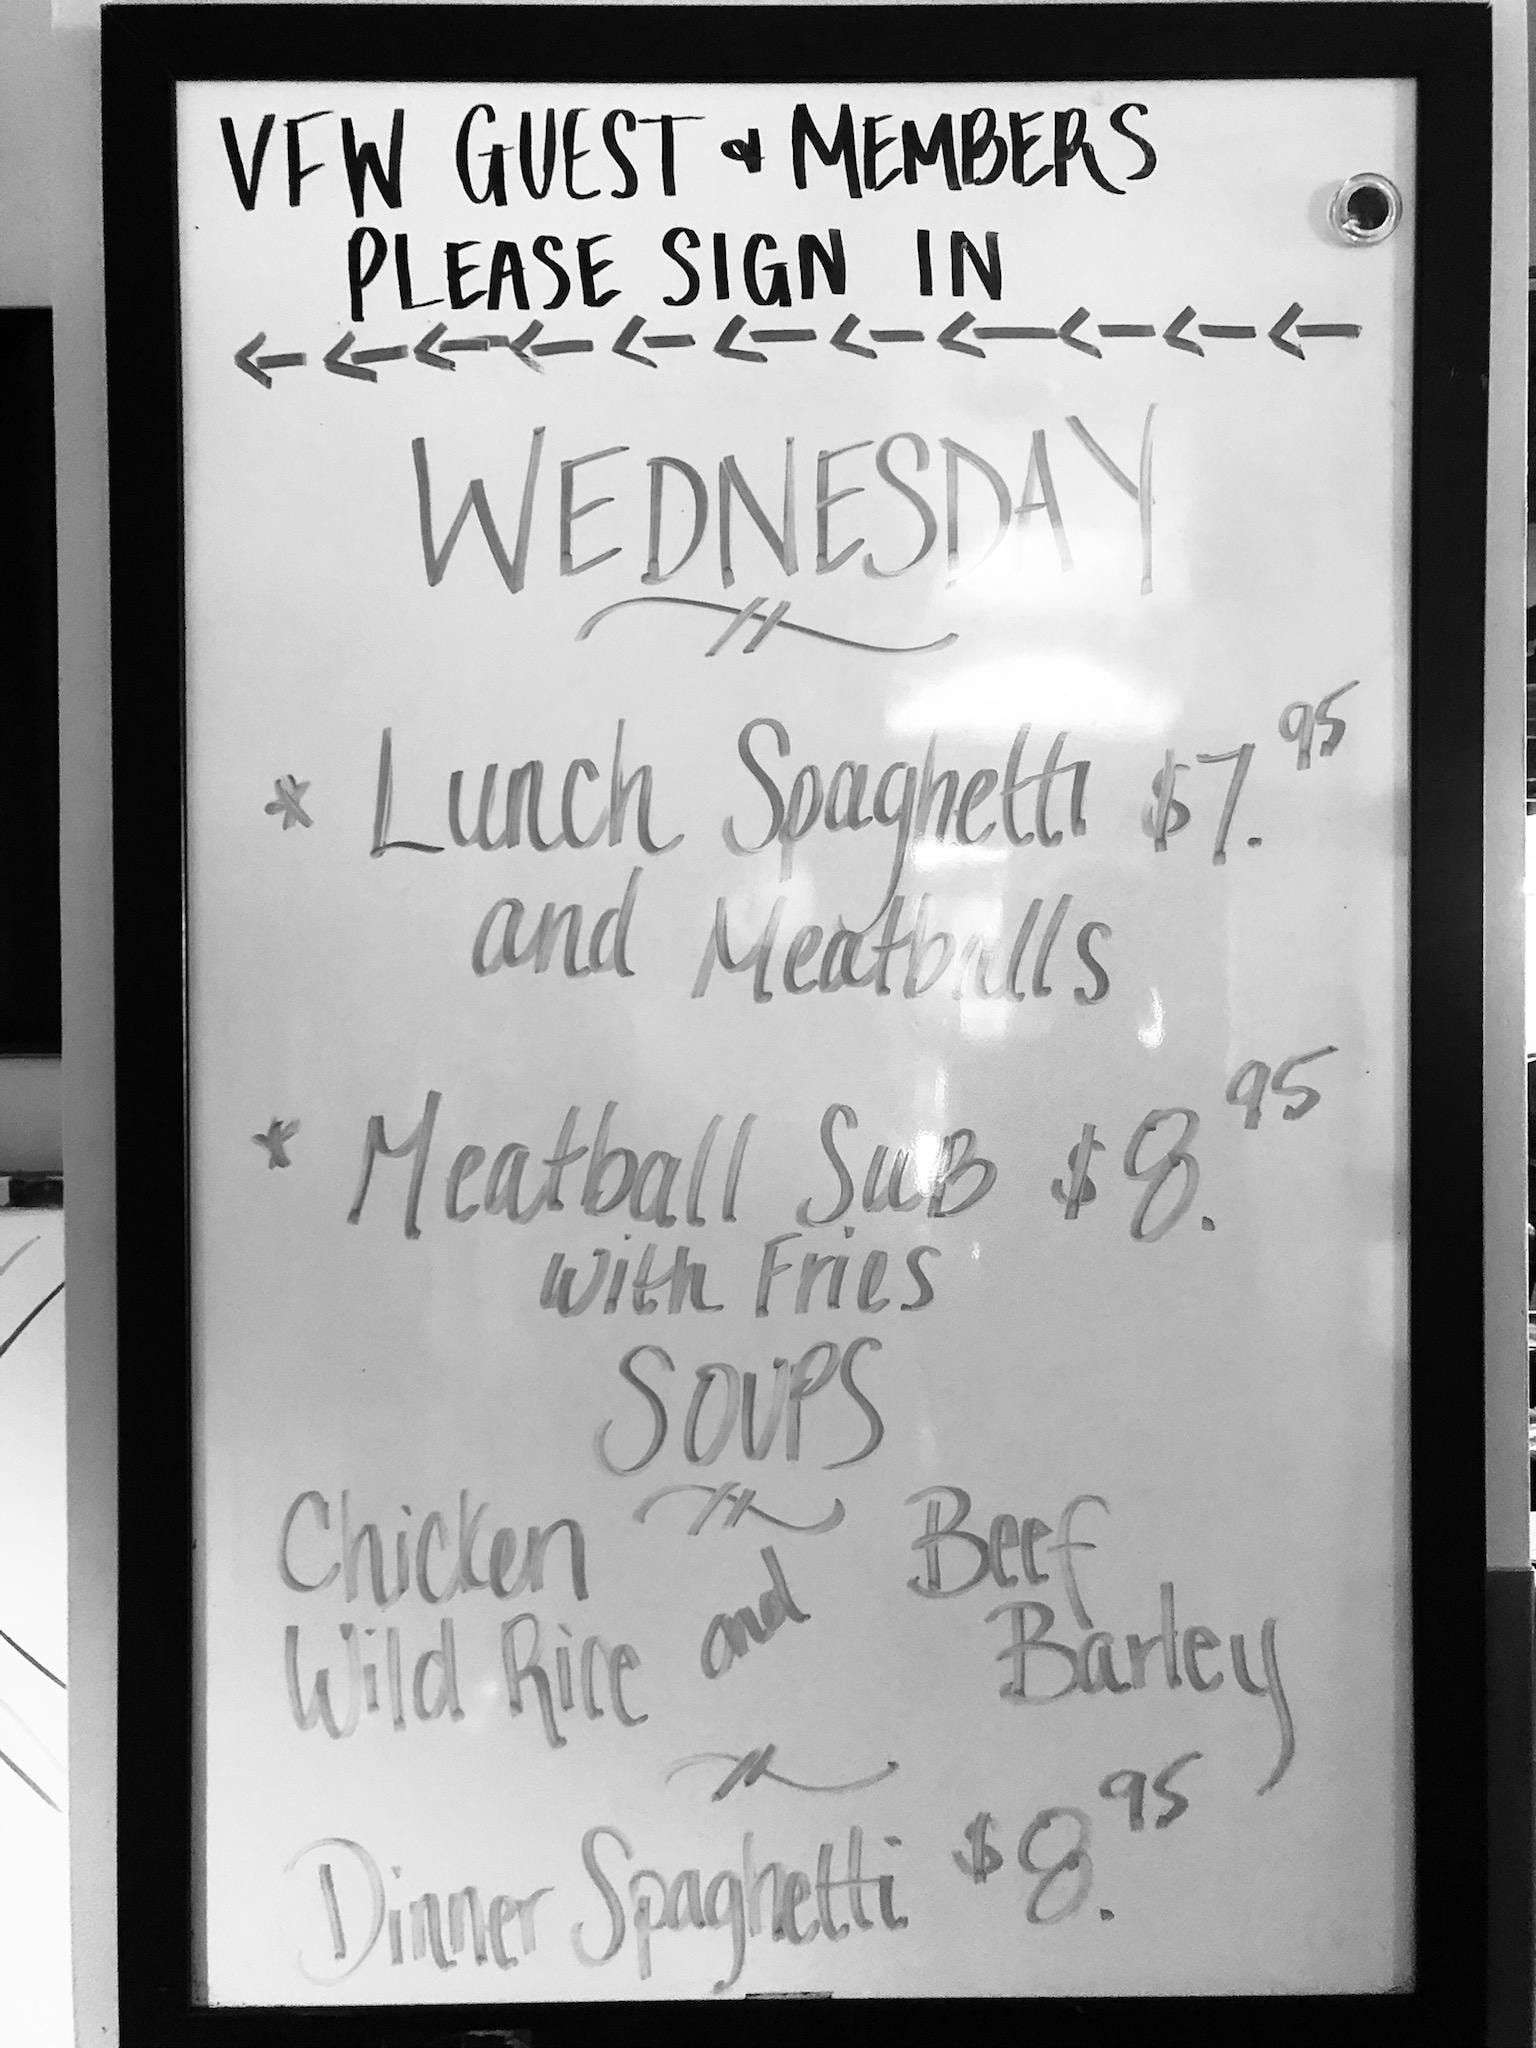 VFW GUEST & MEMBERS
PLEASE SIGN IN
WEDNESDAY
* Lunch Spaghetti $7.95
and Meatballs
* Meatball SUB $8.95
with Fries
SOUPS
Chicken Wild Rice and Beef Barley
Dinner Spaghetti $8.95